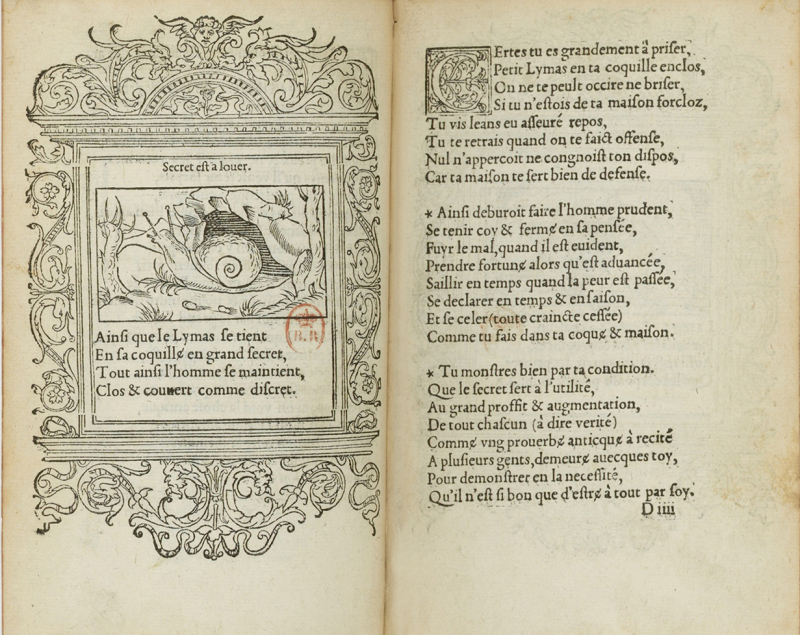 Secret est a louer.
Ainsi que le Lymas se tient
En sa coquillɇ en grand secret,
Tout ainsi l'homme se maintient,
Clos & couuert comme discret.
B. R
CErtes tu es grandement à priser,
Petit Lymas en ta coquille enclos,
On ne te peult occire ne briser,
Si tu n'estois de ta maison forcloz,
Tu vis leans eu asseuré repos,
Tu te retrais quand on te faict offense,
Nul n'appercoit ne congnoist ton dispos,
Car ta maison te sert bien de defense.
* Ainsi deburoit faire l'homme prudent,
Se tenir coy & fermɇ en sa pensée,
Fuyr le mal, quand il est euident,
Prendre fortunɇ alors qu'est aduancée,
Saillir en temps quand la peur est passée,
Se declarer en temps & en saison,
Et se celer (toute craincte cessée)
Comme tu fais dans ta coquɇ & maison.
* Tu monstres bien par ta condition.
Que le secret sert à l'utilité,
Au grand proffit & augmentation,
De tout chascun (à dire verité)
Commɇ vng prouerbɇ anticquɇ à recité
A plusieurs gents, demeurɇ auecques toy,
Pour demonstrer en la necessité,
Qu'il n'est si bon que d'estrɇ à tout par soy.
D iiii